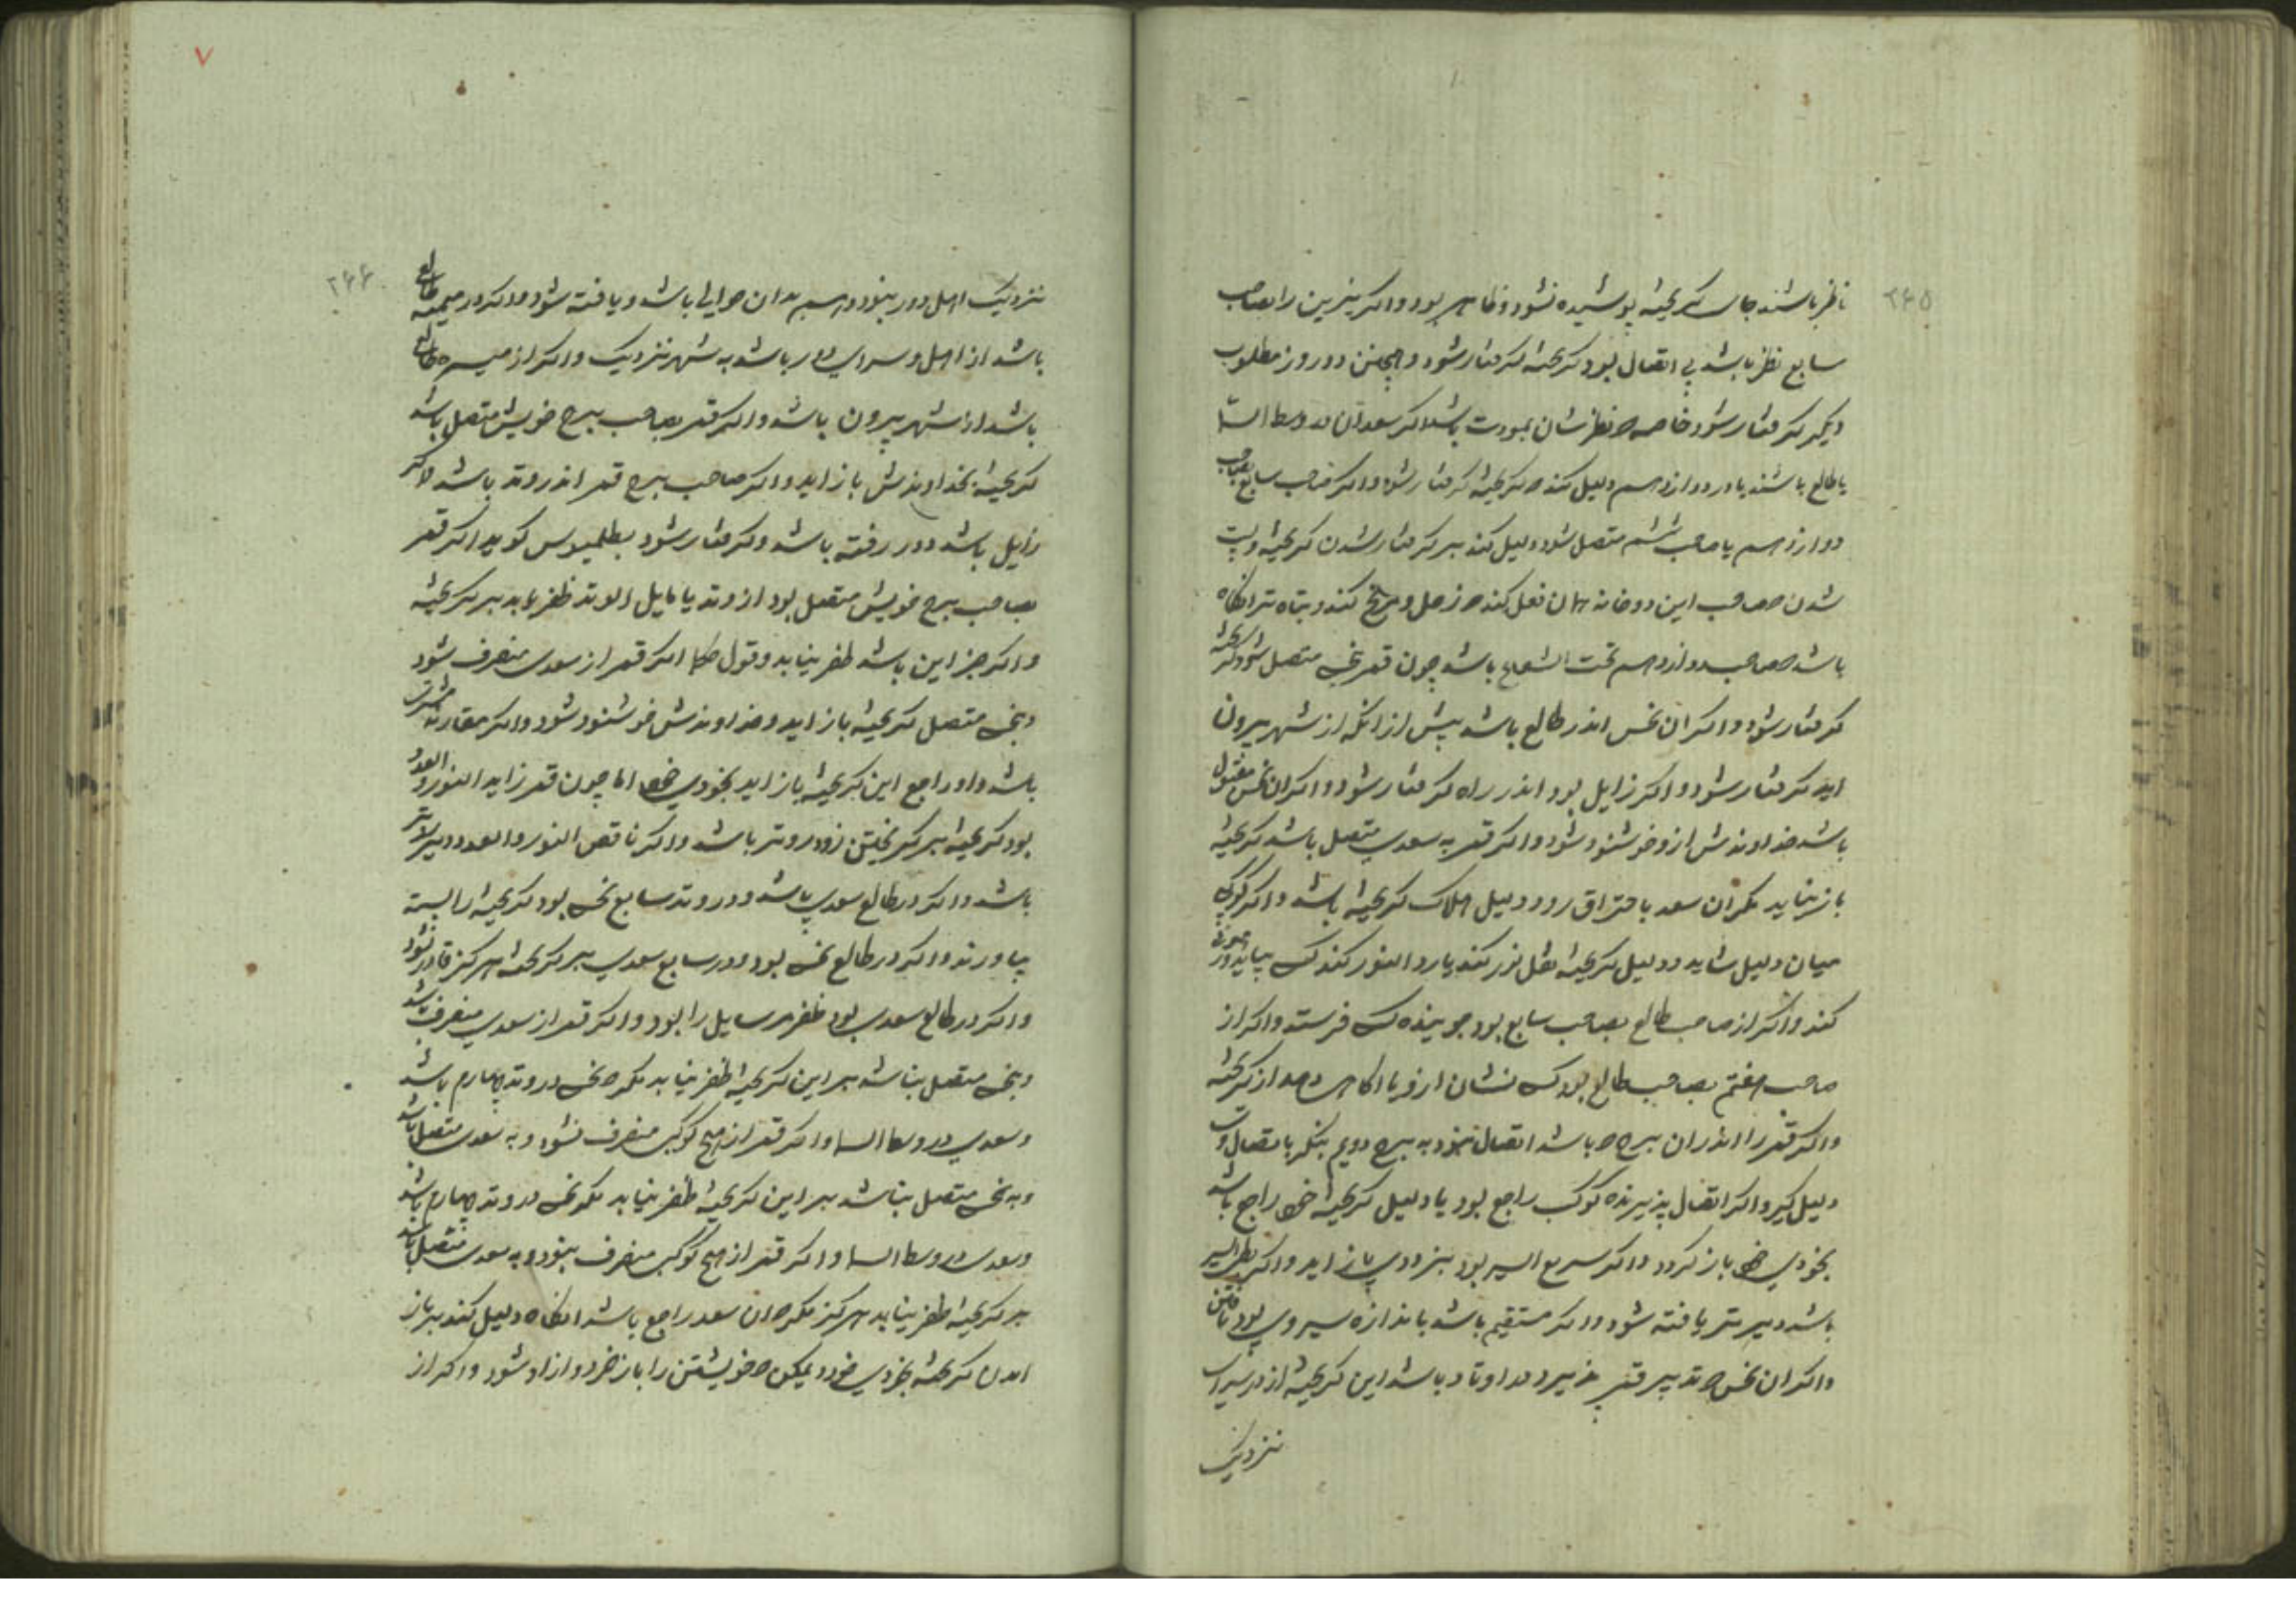 ۲۶۵
ناظر باشند جای گریخته پوشیده نشود و ظاهر بود و اگر نیرین را بصاحب
سابع نظر باشد بی اتصال بود گریخته گرفتار شود و همچنین دو روز مطلوب
دیگر گرفتار شود خاصه نظرشان بمودت باشد اگر سعدان در وسط السما
یا طالع باشند یا در دوازدهم دلیل کند که گریخته گرفتار شود و اگر صاحب سابع بصاحب
دوازدهم یا صاحب ششم متصل شود دلیل کند بر گرفتار شدن گریخته و
شدن صاحب این دو خانه همان فعل کند که زحل و مریخ کند و تباه تر انگاه
باشد که صاحب دوازدهم تحت الشعاع باشد چون قمر بنحسی متصل شود گریخته
گرفتار شود و اگر ان نحس اندر طالع باشد پیش از انکه از شهر بیرون
اید گرفتار شود و اگر زایل بود اندر راه گرفتار شود و اگر ان نحس مقبول
باشد خداوندش ازو خوشنود شود و اگر قمر به سعدی متصل باشد گریخته
باز نیاید مگر ان سعد باحتراق رود دلیل هلاک گریخته باشد و اگر کوکبی
میان دلیل و دلیل گریخته نقل نور کند یا رد النور کند کس بیاید و
کند و اگر از صاحب طالع بصاحب سابع بود جوینده کس فرستد و اگر از
صاحب هفتم بصاحب طالع بود کس نشان ازو یا اگاهی دهد از گریخته
و اگر قمر را اندران برج که باشد اتصال نبود به برج دویم بنگر باتصال و
دلیل گیر و اگر اتصال پذیرنده کوکب راجع بود یا دلیل گریخته راجع باشد
بخودی خود باز گردد و اگر سریع السیر بود بزودی باز اید و اگر بطی السیر
باشد دیرتر یافته شود و اگر مستقیم باشد باندازه سیر وی بود یافتن
و اگر ان نحس که تدبیر قمر پذیرد در اوتاد باشد این گریخته از در سرای
نزدیک
۲۶۶
نزدیک اهل دور بنود و هم بدان حوالی باشد و یافته شود و اگر در میمنه طالع
باشد از اهل و سرای دور باشد به شهر نزدیک و اگر از میسره طالع
باشد از شهر بیرون باشد و اگر قمر بصاحب برج خویش متصل باشد
گریخته بخداوندش باز اید و اگر صاحب برج قمر اندر وتد باشد و اگر
زایل باشد دور رفته باشد و گرفتار شود بطلمیوس گوید اگر قمر
بصاحب برج خویش متصل بود از وتد یا مایل الوتد ظفر یابد بر گریخته
و اگر جز این باشد ظفر نیابد و قول حکما اگر قمر از سعدی منصرف شود
و بنحسی متصل گریخته باز اید و خداوندش خوشنود شود و اگر مقارنه مشتری
باشد و او راجع این گریخته باز اید بخودی خود اما چون قمر زاید النور و العدد
بود گریخته بر گریختن زود روتر باشد و اگر ناقص النور و العدد دیر تر
باشد و اگر در طالع سعدی باشد و در وتد سابع نحس بود گریخته را بسته
بیاورند و اگر در طالع نحس بود و در سابع سعدی بر گریخته هرگز قادر نشود
و اگر در طالع سعدی بود ظفر مر سایل را بود و اگر قمر از سعدی منصرف باشد
و بنحسی متصل نباشد بر این گریخته ظفر نیابد مگر که نحس در وتد چهارم باشد
و سعدی در وسط السما و اگر قمر از هیچ کوکب منصرف نشود و به سعدی متصل باشد
و به نحس متصل نباشد بر این گریخته ظفر نیابد مگر نحس در وتد چهارم باشد
و سعدی در وسط السما و اگر قمر از هیچ کوکب منصرف بنود و به سعدی متصل باشد
بر گریخته ظفر نیابد هرگز مگر که ان سعد راجع باشد انگاه دلیل کند بر باز
امدن گریخته بخودی خود و لیکن که خویشتن را باز خرد و ازاد شود و اگر از
۷